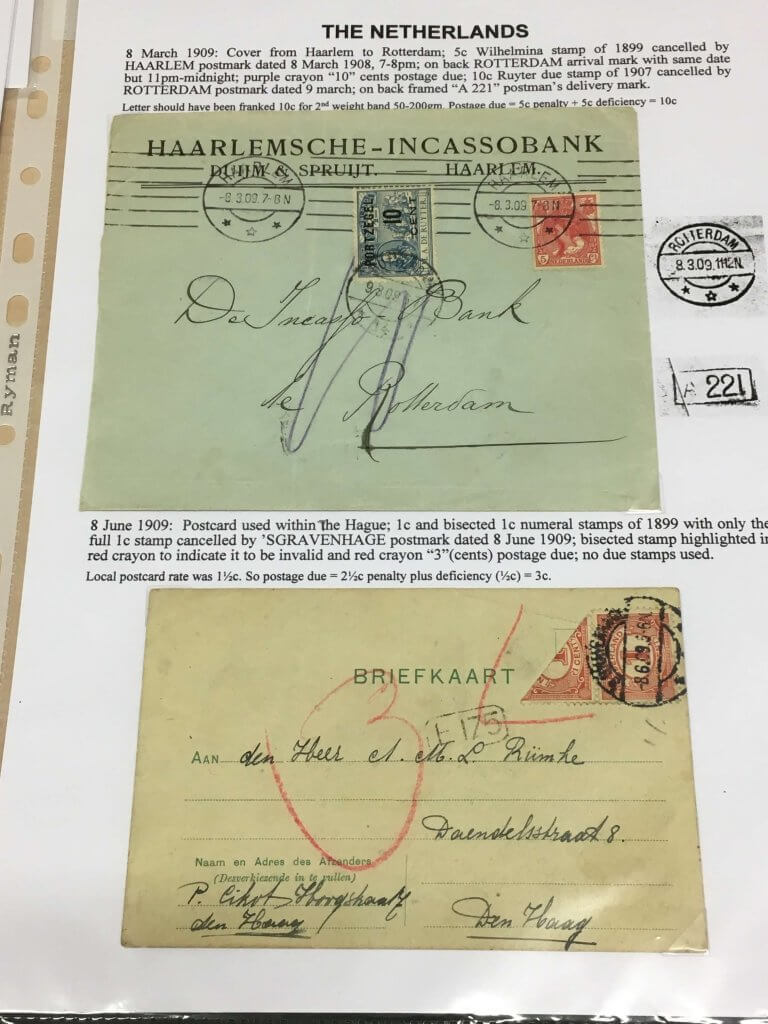 THE NETHERLANDS
8 March 1909: Cover from Haarlem to Rotterdam; 5c Wilhelmina stamp of 1899 cancelled by
HAARLEM postmark dated 8 March 1908, 7-8pm; on back ROTTERDAM arrival mark with same date
but 11pm-midnight; purple crayon "10" cents postage due; 10c Ruyter due stamp of 1907 cancelled by
ROTTERDAM postmark dated 9 march; on back framed "A 221" postman's delivery mark.
Letter should have been franked 10c for 2nd weight band 50-200gm. Postage due = 5c penalty + 5c deficiency = 10c
HAARLEMSCHE-INCASSOBANK
DUIJM & SPRUIJT. — HAARLEM.
HAARLEM
-8.3.09.7-8N
PORTZEGEL
10
CENT
A. DE RUYTER
HAARLEM
-8.3.09.7-8N
5 C
NEDERLAND
ROTTERDAM
8.3.09.1112N
De Incasso-Bank
te Rotterdam
A 221
Ryman
8 June 1909: Postcard used within the Hague; 1c and bisected 1c numeral stamps of 1899 with only the
full 1c stamp cancelled by 'SGRAVENHAGE postmark dated 8 June 1909; bisected stamp highlighted in
red crayon to indicate it to be invalid and red crayon "3"(cents) postage due; no due stamps used.
Local postcard rate was 1½c. So postage due = 2½c penalty plus deficiency (½c) = 3c.
BRIEFKAART
1
CENT
1
-8.6.09.5-6N
3
E 175
AAN den Heer A. M. L. Rümke
Daendelsstraat 8.
Naam en Adres des Afzenders
(Desverkiezende in te vullen)
P. Cikot Hoogstraat
den Haag
Den Haag